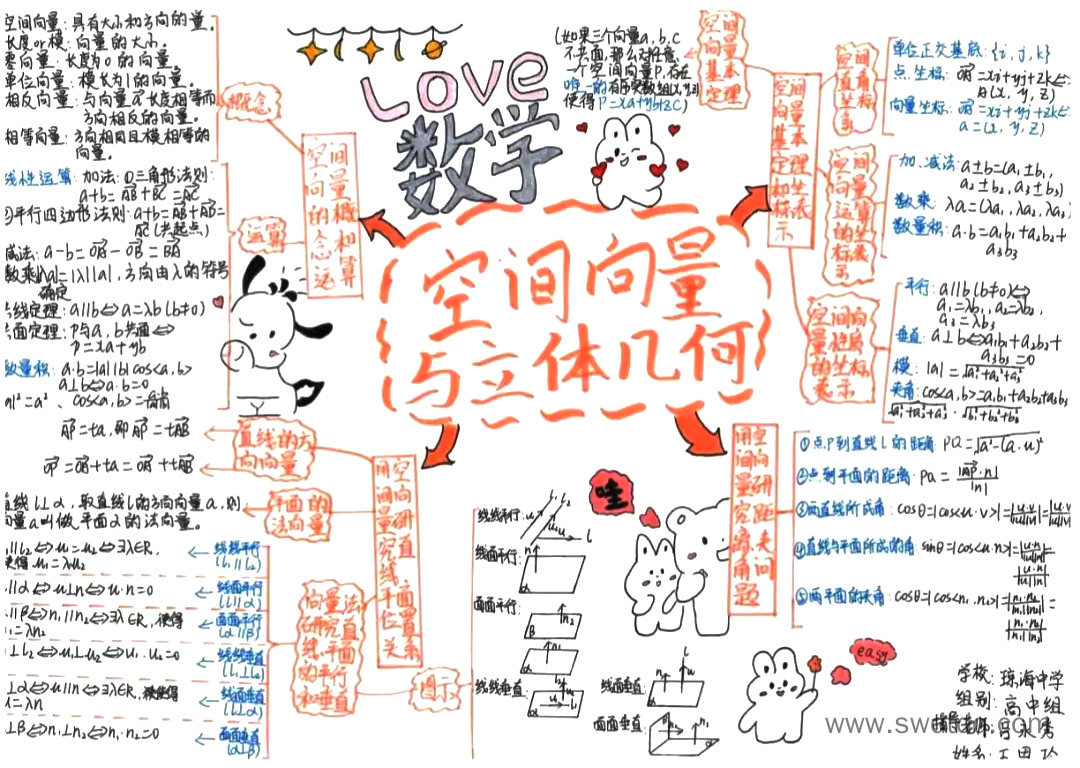 空间向量:具有大小和方向的量。
长度or模:向量的大小。
零向量:长度为0的向量。
单位向量:模长为1的向量。
相反向量:与向量a长度相等而
方向相反的向量。
相等向量:方向相同且模相等的
向量。
概念
线性运算:加法:①三角形法则:
a+b=AB+BC=AC
②平行四边形法则:a+b=AB+AD=
AC(共起点)
减法:a-b=OA-OB=BA
数乘|λa|=|λ||a|,方向由λ的符号
确定
共线定理:a∥b⇔a=λb(b≠0)
共面定理:P与a,b共面⇔
P=xa+yb
数量积:a·b=|a||b|cos<a,b>
a⊥b⇔a·b=0
|a|²=a²、cos<a,b>=
运算
空间向量的概念和运算
LOVE
数学
空间向量
与立体几何
(如果三个向量a,b,c
不共面,那么对任意
一个空间向量P,存在
唯一的有序实数组(x,y,z)
使得P=xa+yb+zc)
空间向量基本定理
空间向量基本定理和坐标表示
空间直角坐标系
单位正交基底:{i,j,k}
点坐标:OA=xi+yj+zk⇔
A(x,y,z)
向量坐标:OA=xi+yj+zk⇔
a=(x,y,z)
空间向量运算的坐标表示
加.减法:a±b=(a₁±b₁,
a₂±b₂,a₃±b₃)
数乘:λa=(λa₁,λa₂,λa₃)
数量积:a·b=a₁b₁+a₂b₂+
a₃b₃
空间向量的坐标表示
平行:a∥b(b≠0)⇔
a₁=λb₁,a₂=λb₂,
a₃=λb₃
垂直:a⊥b⇔a₁b₁+a₂b₂+
a₃b₃=0
模:|a|=√a₁²+a₂²+a₃²
夹角:cos<a,b>=a₁b₁+a₂b₂+a₃b₃
√a₁²+a₂²+a₃²·√b₁²+b₂²+b₃²
直线的方向向量
AP=ta,即AP=tAB
OP=OA+ta=OA+tAB
平面的法向量
直线l⊥α,取直线l的方向向量a,则
向量a叫做平面α的法向量。
用空间向量研究直线、平面位置关系
向量法研究直线、平面的平行和垂直
线线平行
(l₁∥l₂)
l₁∥l₂⇔u₁=u₂⇔∃λ∈R,
使得u₁=λu₂
线面平行
(l∥α)
l∥α⇔u⊥n⇔u·n=0
面面平行
(α∥β)
α∥β⇔n₁∥n₂⇔∃λ∈R,使得
n₁=λn₂
线线垂直
(l₁⊥l₂)
l₁⊥l₂⇔u₁⊥u₂⇔u₁·u₂=0
线面垂直
(l⊥α)
l⊥α⇔u∥n⇔∃λ∈R,使得
u=λn
面面垂直
(α⊥β)
α⊥β⇔n₁⊥n₂⇔n₁·n₂=0
图示
线线平行:
线面平行:
面面平行:
线线垂直:
线面垂直:
面面垂直:
哇
用空间向量研究距离、夹角问题
①点P到直线l的距离:PQ=√a²-(a·u)²
②点到平面的距离:PQ=|AP·n|/|n|
③两直线所成角:cosθ=|cos<u·v>|=|u·v/|u||v||=|u·v|/|u||v|
④直线与平面所成的角 sinθ=|cos<u·n>|=|u·n/|u||n||=|u·n|/|u||n|
⑤两平面的夹角:cosθ=|cos<n₁.n₂>|=|n₁·n₂/|n₁||n₂||=
|n₁·n₂|/|n₁||n₂|
easy
学校:琼海中学
组别:高中组
www.sw